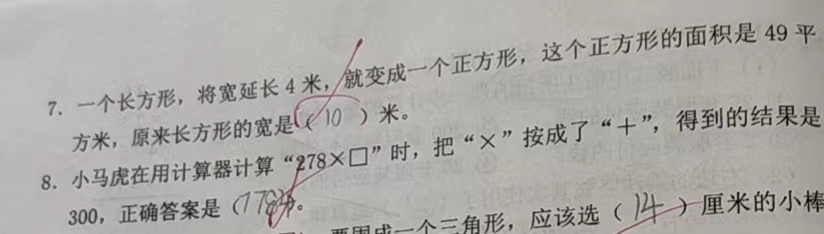 7. 一个长方形，将宽延长 4 米，就变成一个正方形，这个正方形的面积是 49 平
方米，原来长方形的宽是（ 10 ）米。
8. 小马虎在用计算器计算“278×□”时，把“×”按成了“＋”，得到的结果是
300，正确答案是（7784）。
要围成一个三角形，应该选（ 14 ）厘米的小棒